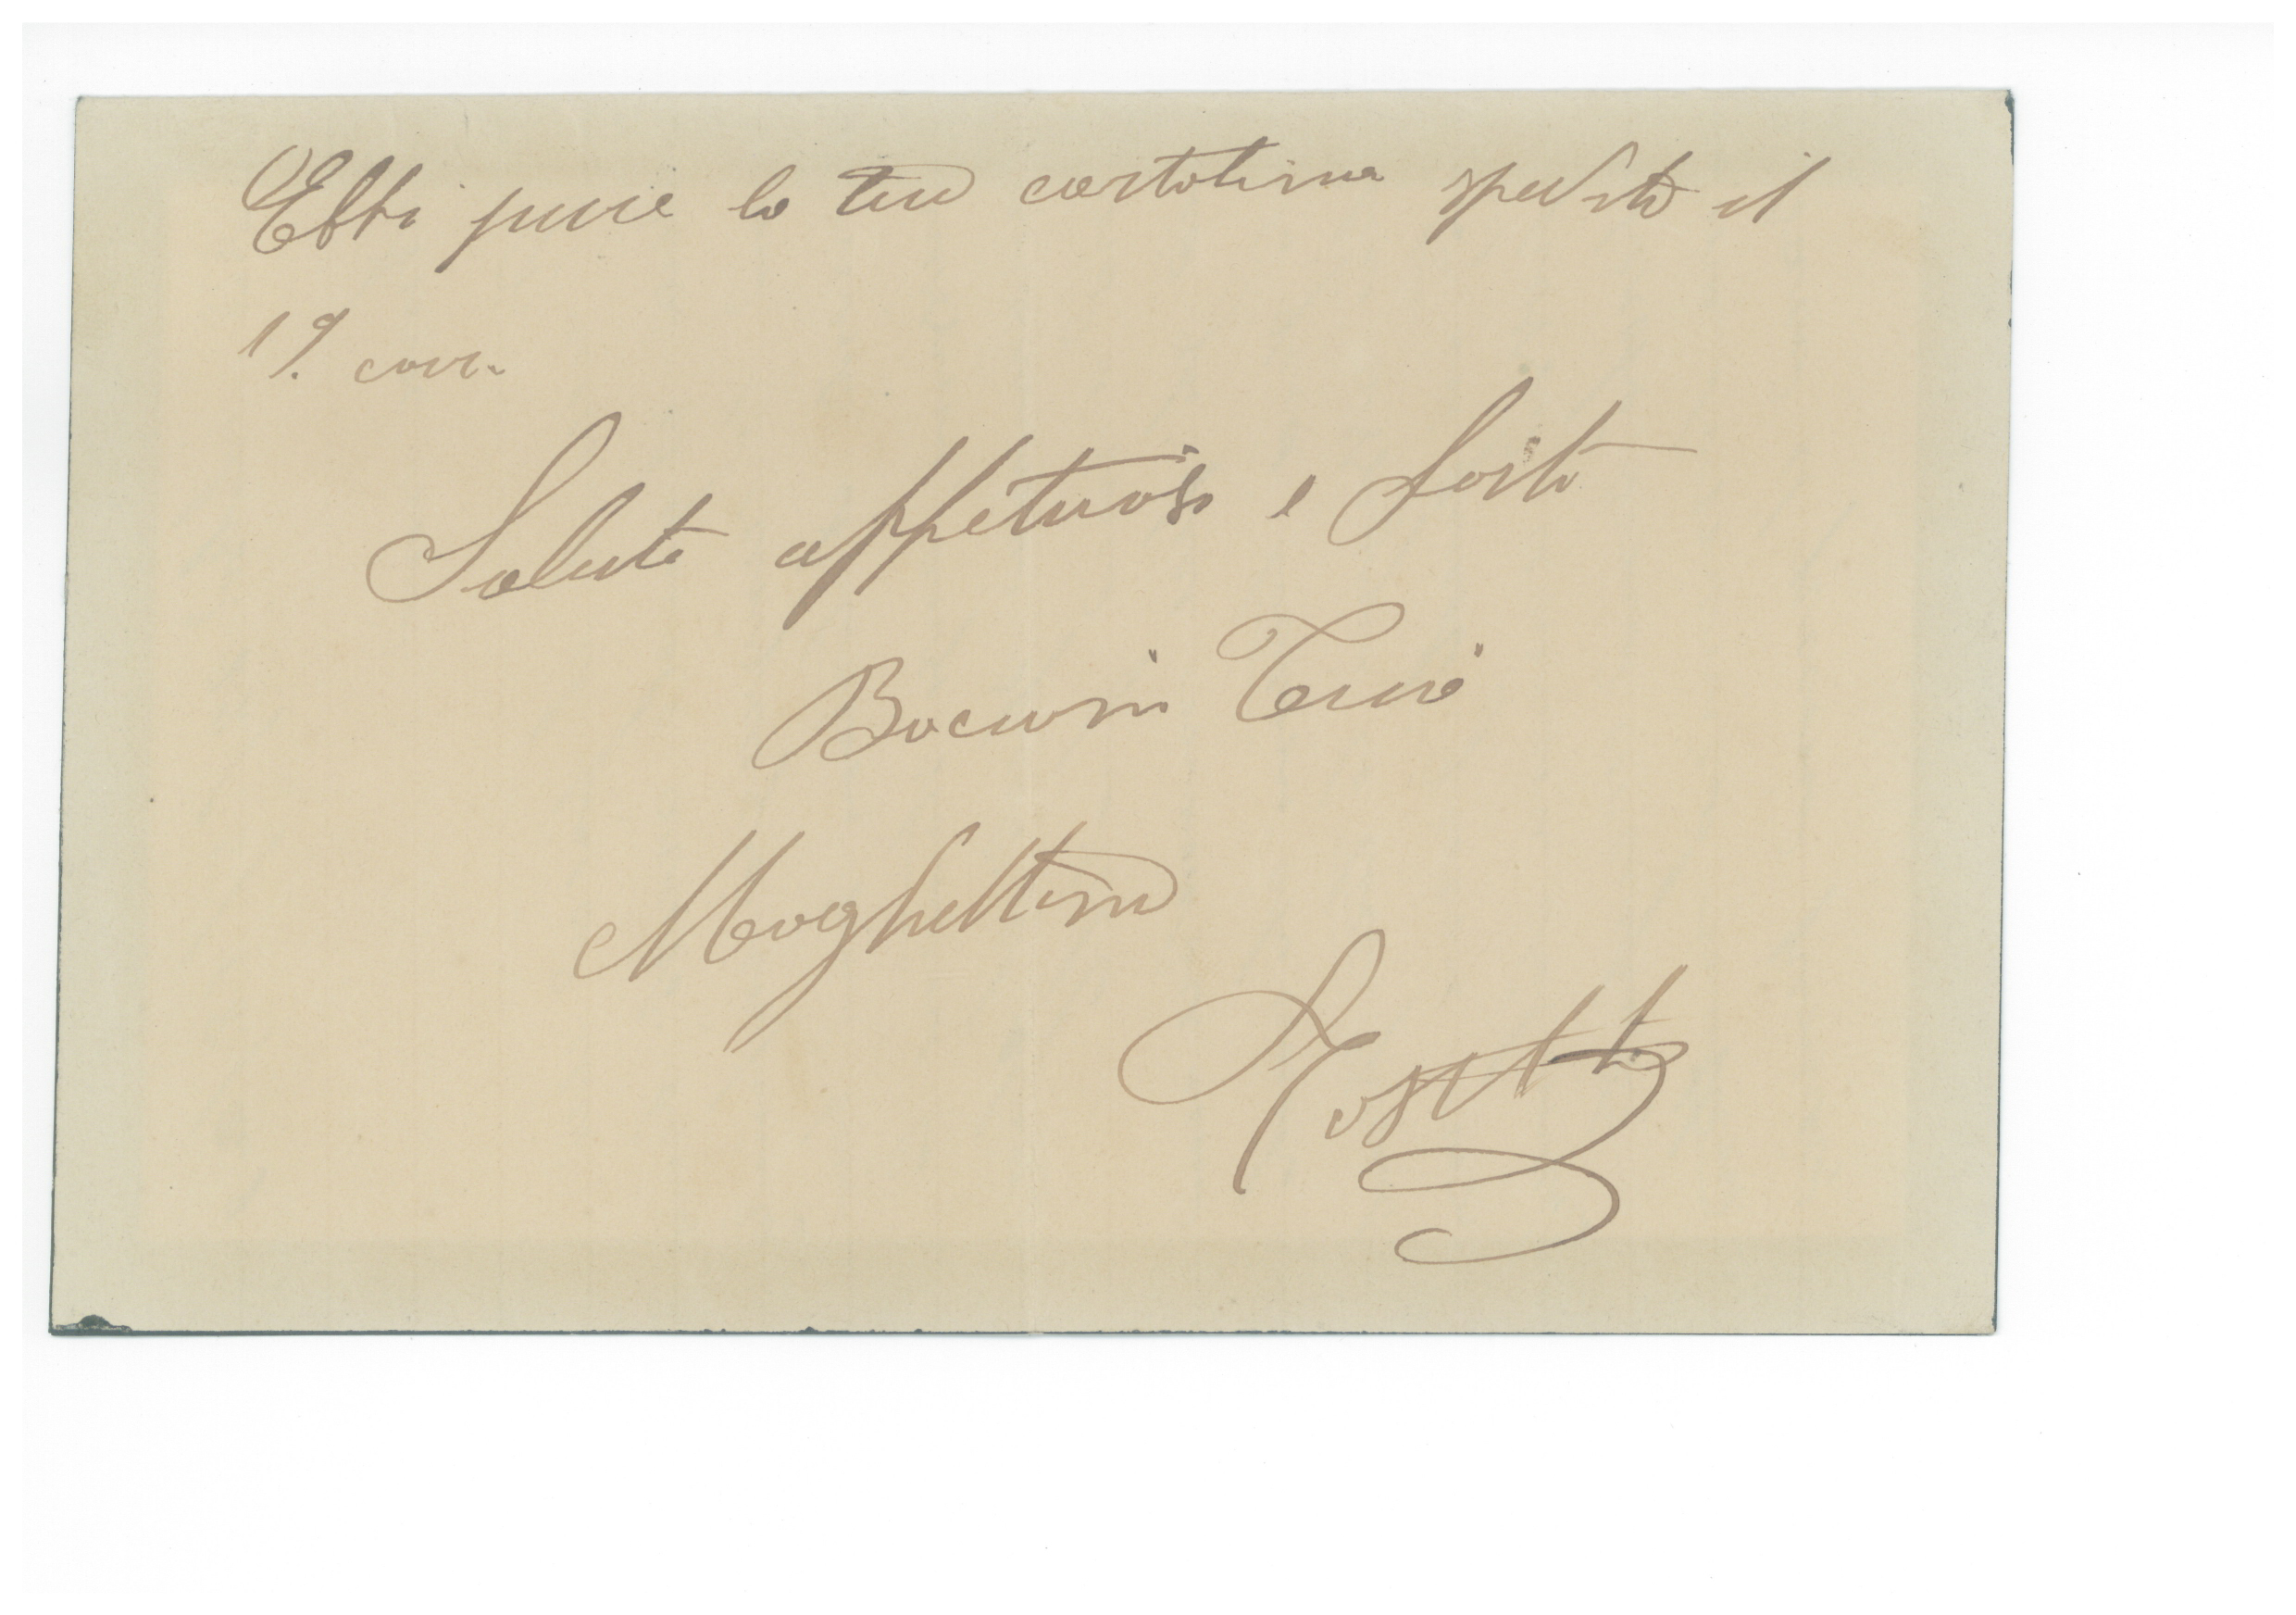 Ebbi pure la tua cartolina spedita il
19. corr.
Saluti affettuosi e forti
Bacioni Tuoi
Moghettina